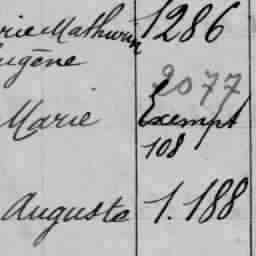 rie Mathurin 1286
Eugène
2077
Marie Exempt
108
Auguste 1.188